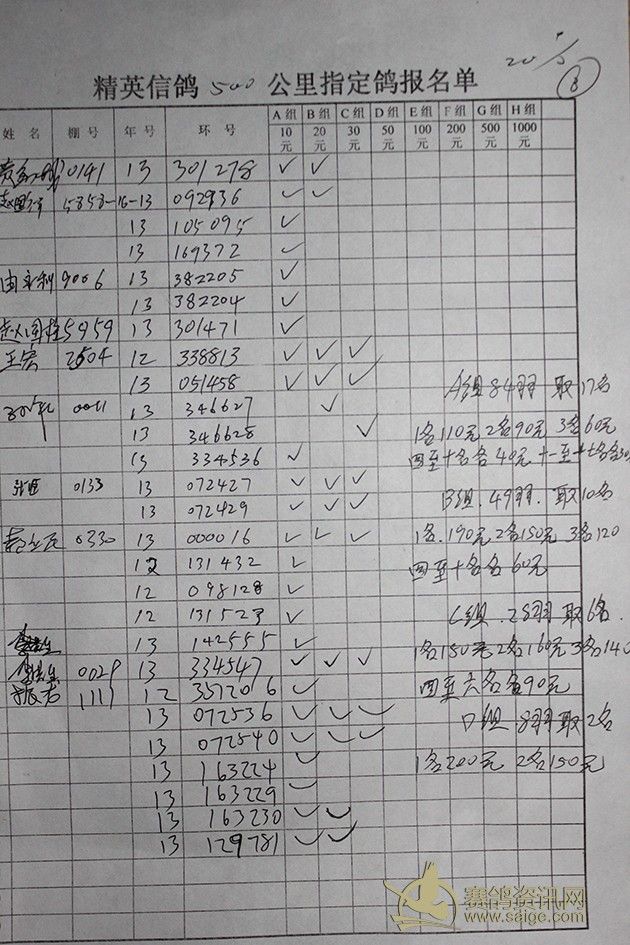 20 1/5
8
精英信鸽 500 公里指定鸽报名单
姓名 棚号 年号 环号 A组 10元 B组 20元 C组 30元 D组 50元 E组 100元 F组 200元 G组 500元 H组 1000元
0141 13 301278 ✓ ✓
5858-16-13 092936 ✓ ✓
13 105095 ✓
13 169372 ✓
由永利 9006 13 382205 ✓
13 382204 ✓
5959 13 301471 ✓
王宏 2504 12 338813 ✓ ✓ ✓
13 051458 ✓ ✓ ✓
A组84羽 取17名
0011 13 346627 ✓
13 346628 ✓
1名110元 2名90元 3名60元
13 334536 ✓
四至十名各40元 十一至十七名各30
0133 13 072427 ✓ ✓ ✓
13 072429 ✓ ✓ ✓
B组.49羽.取10名
0330 13 000016 ✓ ✓ ✓
1名.190元 2名150元 3名120
12 131432 ✓
四至十名各60元
12 098128 ✓
12 131523 ✓
C组.28羽 取6名.
13 142555 ✓
1名150元 2名160元 3名140
0029 13 334547 ✓ ✓ ✓
1111 12 3572016 ✓
四至六名各90元
13 072536 ✓ ✓ ✓
D组 8羽取2名
13 072540 ✓ ✓ ✓
13 163224 ✓
1名200元 2名150元
13 163229 ✓
13 163230 ✓ ✓
13 129781 ✓ ✓
赛鸽资讯网
www.saige.com